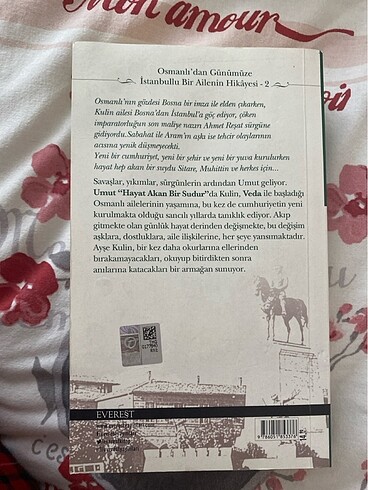 Mon amour
Osmanlı'dan Günümüze
İstanbullu Bir Ailenin Hikâyesi - 2
Osmanlı'nın gözdesi Bosna bir imza ile elden çıkarken,
Kulin ailesi Bosna'dan İstanbul'a göç ediyor, çöken
imparatorluğun son maliye nazırı Ahmet Reşat sürgüne
gidiyordu. Sabahat ile Aram'ın aşkı ise tehcir olaylarının
acısına yenik düşmeyecekti.
Yeni bir cumhuriyet, yeni bir şehir ve yeni bir yuva kurulurken
hayat hep akan bir suydu Sitare, Muhittin ve herkes için...
Savaşlar, yıkımlar, sürgünlerin ardından Umut geliyor.
Umut "Hayat Akan Bir Sudur"da Kulin, Veda ile başladığı
Osmanlı ailelerinin yaşamına, bu kez de cumhuriyetin yeni
kurulmakta olduğu sancılı yıllarda tanıklık ediyor. Akıp
gitmekte olan günlük hayat derinden değişmekte, bu değişim
aşklara, dostluklara, aile ilişkilerine, her şeye yansımaktadır.
Ayşe Kulin, bir kez daha okurlarına ellerinden
bırakamayacakları, okuyup bitirdikten sonra
anılarına katacakları bir armağan sunuyor.
EVEREST
c'est
amour